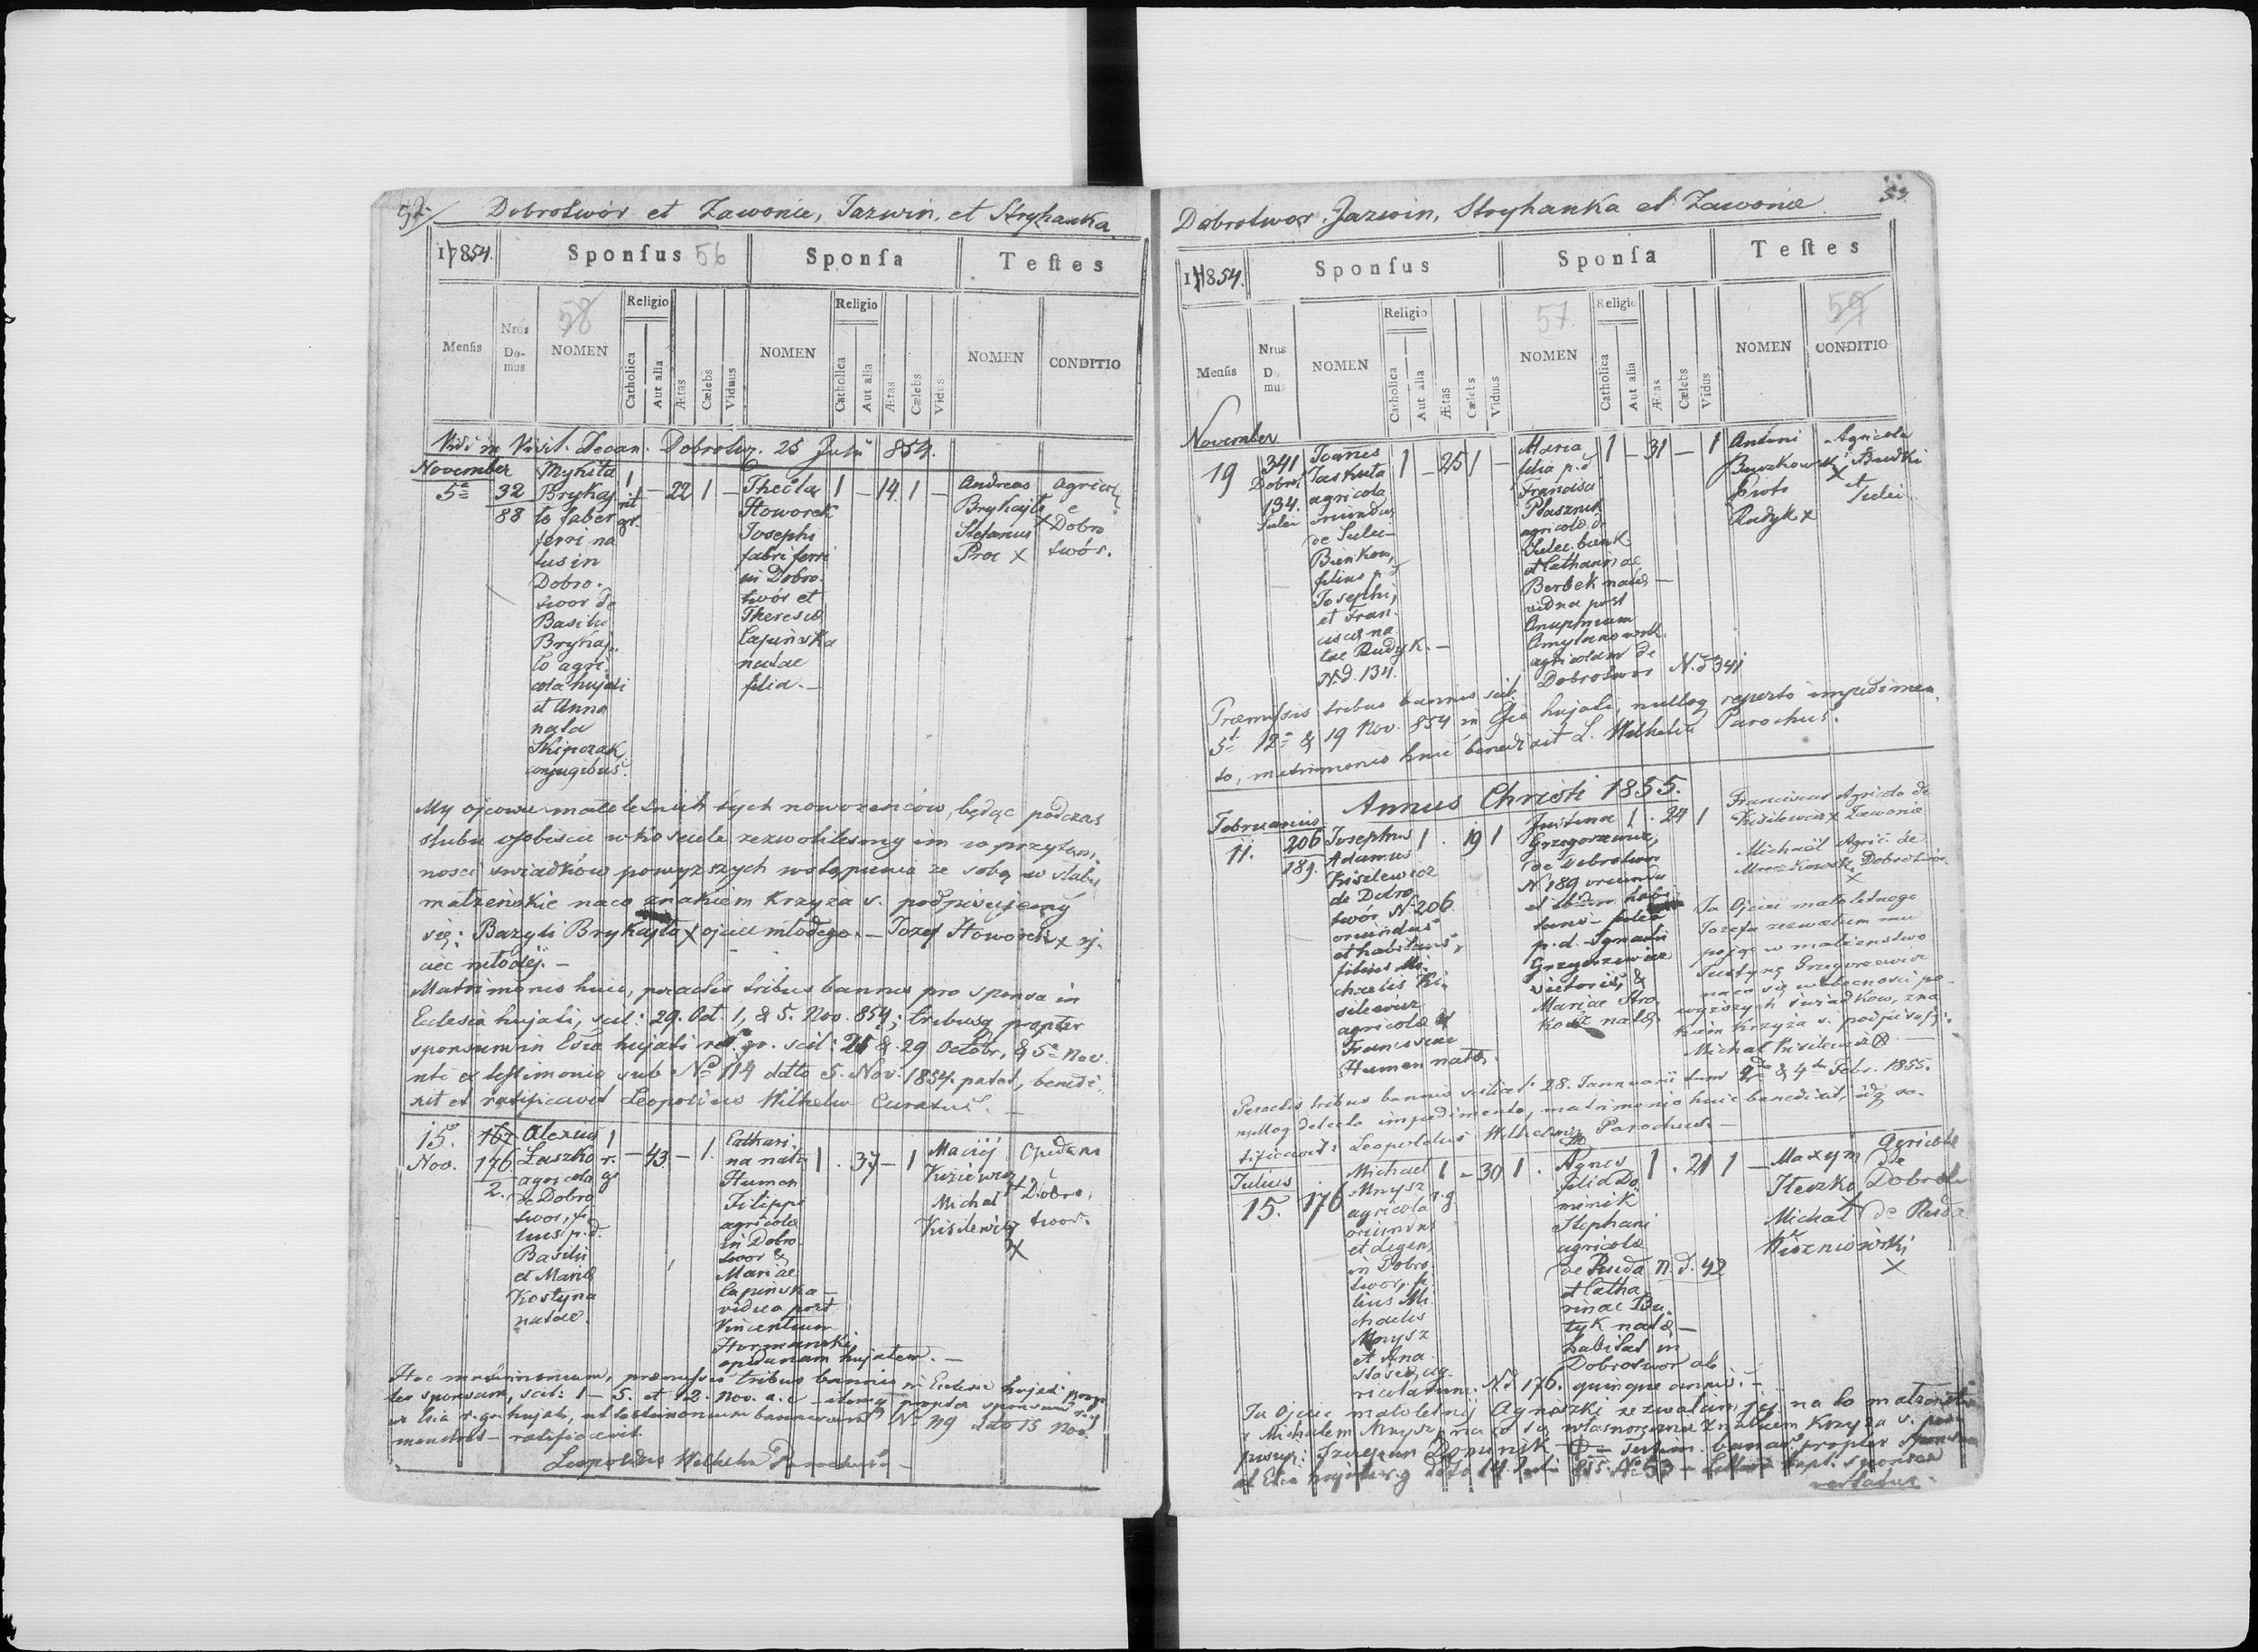 52
Dobrotwór et Zawonie, Jazwin, et Stryhanka
17854.
Sponſus 56
Sponſa
Teſtes
Menſis
Nros Domus
58
NOMEN
Religio
Catholica
Aut alia
Ætas
Cælebs
Viduus
NOMEN
Religio
Catholica
Aut alia
Ætas
Cælebs
Vidus
NOMEN
CONDITIO
Vidi in Visit. Decan. Dobrotw. 25 Julii 854.
November
5ª
32
88
Mykita
Brykaj
to faber
ferri na
tus in
Dobro-
twor de
Basilio
Brykaj-
to agri-
cola hujati
et Anna
nata
Skipczak
conjugibus.
1 rit. gr. – 22 1 –
Thecla
Howorek
Josephi
fabri ferri
in Dobro-
twór et
Theresiæ
Lapinska
natae
filia. –
1 – 14 1 –
Andreas
Brykajto
x
Stefanus
Proc x
agricolæ
e
Dobro
twór.
My ojcowie małoletnich tych nowożeńców, będąc podczas
ślubu osobiście w kościele zezwolilismy im w przytom-
ności świadków powyższych wstąpienia ze sobą w śluby
małżeńskie na co znakiem krzyża s. podpisujemy
się: Bazyli Brykajto x ojciec młodego. – Jozef Howorek x oj-
ciec młodéj. –
Matrimonio huic, peractis tribus bannis pro sponsa in
Ecclesia hujati, scil: 29. Oct. 1, & 5. Nov. 854; tribusq propter
sponsum in Ecclia hujati rit. gr. scil: 25 & 29 Octobr, & 5ª Nov.
uti ex testimonio sub No 114 ddto 5. Nov. 1854. patet, benedi-
xit et ratificavit Leopoldus Wilhelm Curatus. –
15ª
Nov.
167
176
2.
Alexius
Laszko
agricola
de Dobro
twor, fi-
lius p.d.
Basilii
et Mariæ
Kostyna
natae.
1 r. g. – 43 – 1.
Cathari-
na nata
Human
Filippi
agricolæ
in Dobro
twor &
Mariae
Lapinska –
vidua post
Vincentium
Hormanski
opidanum hujatem. –
1 . 37 – 1
Maciéj
Kiziewicz
x
Michał
Kisilewicz
x
Opidani
Dobro-
twor.
Hoc matrimonium, præmissis tribus bannis in Ecclesia hujati prop-
ter sponsam, scil: 1 – 5. et 12. Nov. a. c – itemq propter sponsum
in Ecclia r. gr. hujati, ut testimonium bannorum No 119 ddto 15 Nov.
– ratificavit
Leopoldus Wilhelm Parochus –
53.
Dobrotwor, Jazwin, Stryhanka et Zawonie
17854.
Sponſus
Sponſa
Teſtes
Menſis
Nrus Domus
NOMEN
Religio
Catholica
Aut alia
Ætas
Cælebs
Viduus
57.
NOMEN
Religio
Catholica
Aut alia
Ætas
Cælebs
Vidus
NOMEN
59
CONDITIO
November
19
341
Dobrot
134.
Sielec
Joanes
Jaskuta
agricola
oriundus
de Sielec
Bienkow,
filius p.d
Josephi,
et Fran-
ciscæ na-
tae Rudyk. –
N.d. 134.
1 – 25 1 –
Maria
filia p.d
Francisci
Ptasznik
agricolæ de
Sielec bienk.
et Catharinae
Berbek natæ –
vidua post
Onuphrium
agricolam de
Dobrotwor N.d 341
1 – 31 – 1
Antoni
Buczkowski
x
Piotr
Rudyk x
Agricolæ
Budki
et
Sielec
Præmissis tribus bannis scil:
5ª 12ª & 19 Nov. 854 in Ecclia hujati, nulloq reperto impedimen-
to, matrimonio huic benedixit L. Wilhelm Parochus.
Annus Christi 1855.
Februarius
11.
206
189.
Josephus
Adamus
Kisilewicz
de Dobro
twór N 206
oriundus
et habitans,
filius Mi-
chaelis Ki-
silewicz
agricolæ et
Franciscae
Human natæ.
1 . 19 1
Justina
Grzegorzewicz,
de Dobrotwor
N 189 oriunda
et ibidem habi-
tans – filia
p.d. Ignatii
Grzegorzewicz
&
Mariae Stro-
natæ.
1 . 24 1
Franciscus
Kisilewicz x
Agricola de
Zawonie
Michaël
Mroczkowski
x
Agric. de
Dobrotwór
Ja Ojciec małoletnego
Jozefa zezwalam mu
pojąć w małżenstwo
Justynę Grzegorzewicz
na co się w obecności po-
wyższych świadków, zna-
kiem Krzyża s. podpisuję:
Michał Kisilewicz x –
Peractis tribus bannis scilicet: 28. Januarii tum 2da & 4ta Febr. 1855.
nulloq detecto impedimento, matrimonio huic benedixit, idq ra-
tificavit: Leopoldus Wilhelm Parochus –
Julius
15.
176
Michael
Mnysz
agricola
oriundus
et degens
in Dobro-
twor, fi-
lius Mi-
chaelis
Mnysz
et Ana-
stasiæ, ag-
ricolarum: Nd 176.
1 r. g – 30 1 .
Agnes
filia Do-
minik
Stephani
agricolæ
de Ruda n. d. 42
et Catha-
rinae Bu-
tyk natæ –
habitat in
Dobrotwor ab
quinque annis. –
1 . 21 1
– Maxym
Iteszko
x
Michał
Wiszniowski
x
Agricolæ
de
Dobrotw
de Ruda
Ja Ojciec małoletniéj Agnieszki zezwalam jéj na to małżeństwo
z Michałem Mnysz, na co się własnoręcznie znakiem krzyża s. pod-
pisuję: Szczepan Dominik x – Testim. bannor. propter sponsum
ab Ecclia hujati r. g ddto 14. Julii 855. No 53 –
vertatur.